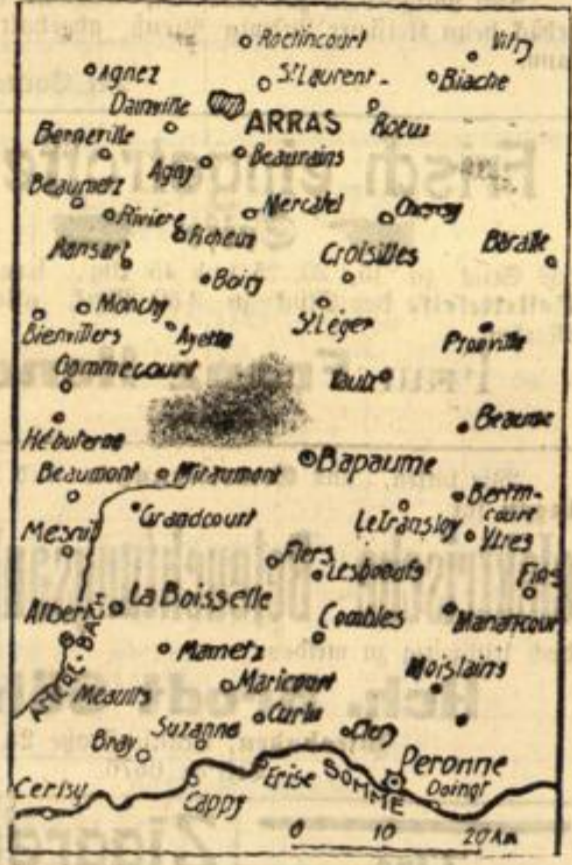 Roclincourt
Vitry
Agnez
St Laurent
Biache
Dainville
ARRAS
Roeux
Berneville
Agny
Beaurains
Beaumetz
Mercatel
Cherisy
Riviere
Ficheux
Ransart
Croisilles
Baralle
Boiry
Monchy
St Léger
Bienvillers
Ayette
Pronville
Gommecourt
Vaulx
Beaume
Hébuterne
Bapaume
Beaumont
Miraumont
Bertin-
court
Grandcourt
Le Transloy
Ytres
Mesnil
Flers
Lesboeufs
Fins
Albert
La Boisselle
Combles
Manancour
Mametz
Moislains
ANCRE-BACH
Maricourt
Meaults
Curlu
Clery
Suzanne
Bray
Peronne
Cerisy
Cappy
SOMME
Doingt
0 10 20 Km